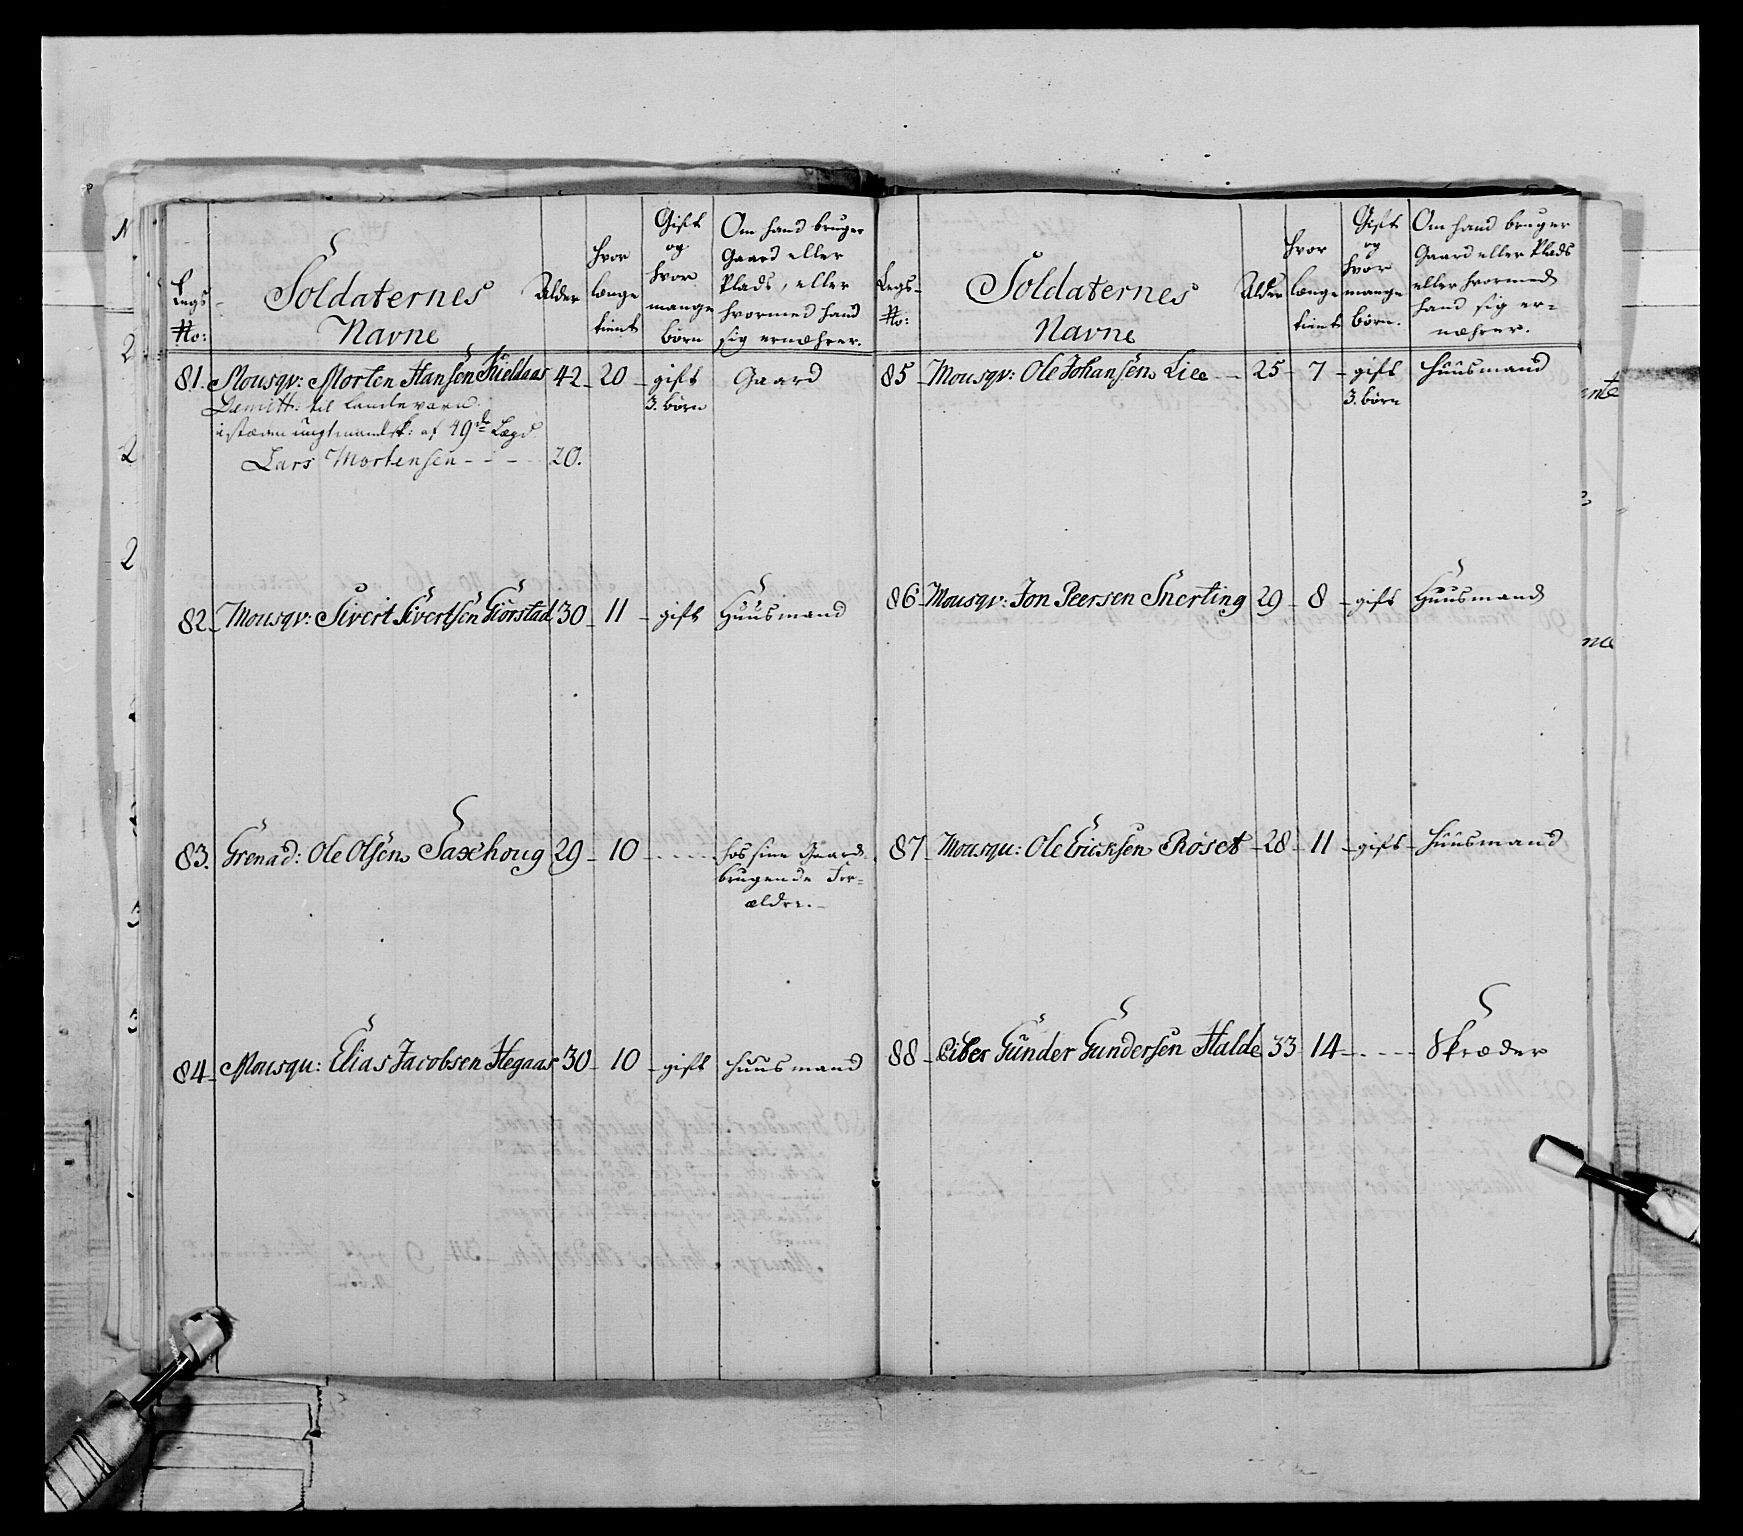 Legs No:
Soldaternes
Navne
Alder
hvor
længe
tient
Gift
og
hvor
mange
børn
Om hand bruger
Gaard eller
Plads, eller
hvormed hand
sig ernæhrer.
81. Mousqv: Morten Hansen Kieldaas 42 - 20 - gift Gaard
3. børn
Demitt: til landeværn.
istæden ungtmandsk: af 49de Lægd
Lars Mortensen - - - - 20.
82 - Mousqv: Sivert Sivertsen Giorstad 30 - 11 - gift Huusmand
83. Grenad: Ole Olsen Saxhoug 29 - 10 - - - - - hos sine Gaard
brugende For-
ældre. -
84 - Mousqu: Elias Jacobsen Hegaas 30 - 10 - gift huusmand
Legs-
No:
Soldaternes
Navne
Alder
hvor
længe
tient
Gift
og
hvor
mange
børn.
Om hand bruger
Gaard eller Plads
eller hvormed
hand sig er-
næhrer.
85 - Mousqv: Ole Johansen Liee - - 25 - 7 - gift huusmand
3. børn
86 - Mousqv: Jon Peersen Snerting 29 - 8 - gift Huusmand
87 - Mousqu: Ole Ericksen Röset - 28 - 11 - gift - huusmand
88 - Piber Gunder Gundersen Halde 33 14 - - - - Skræder